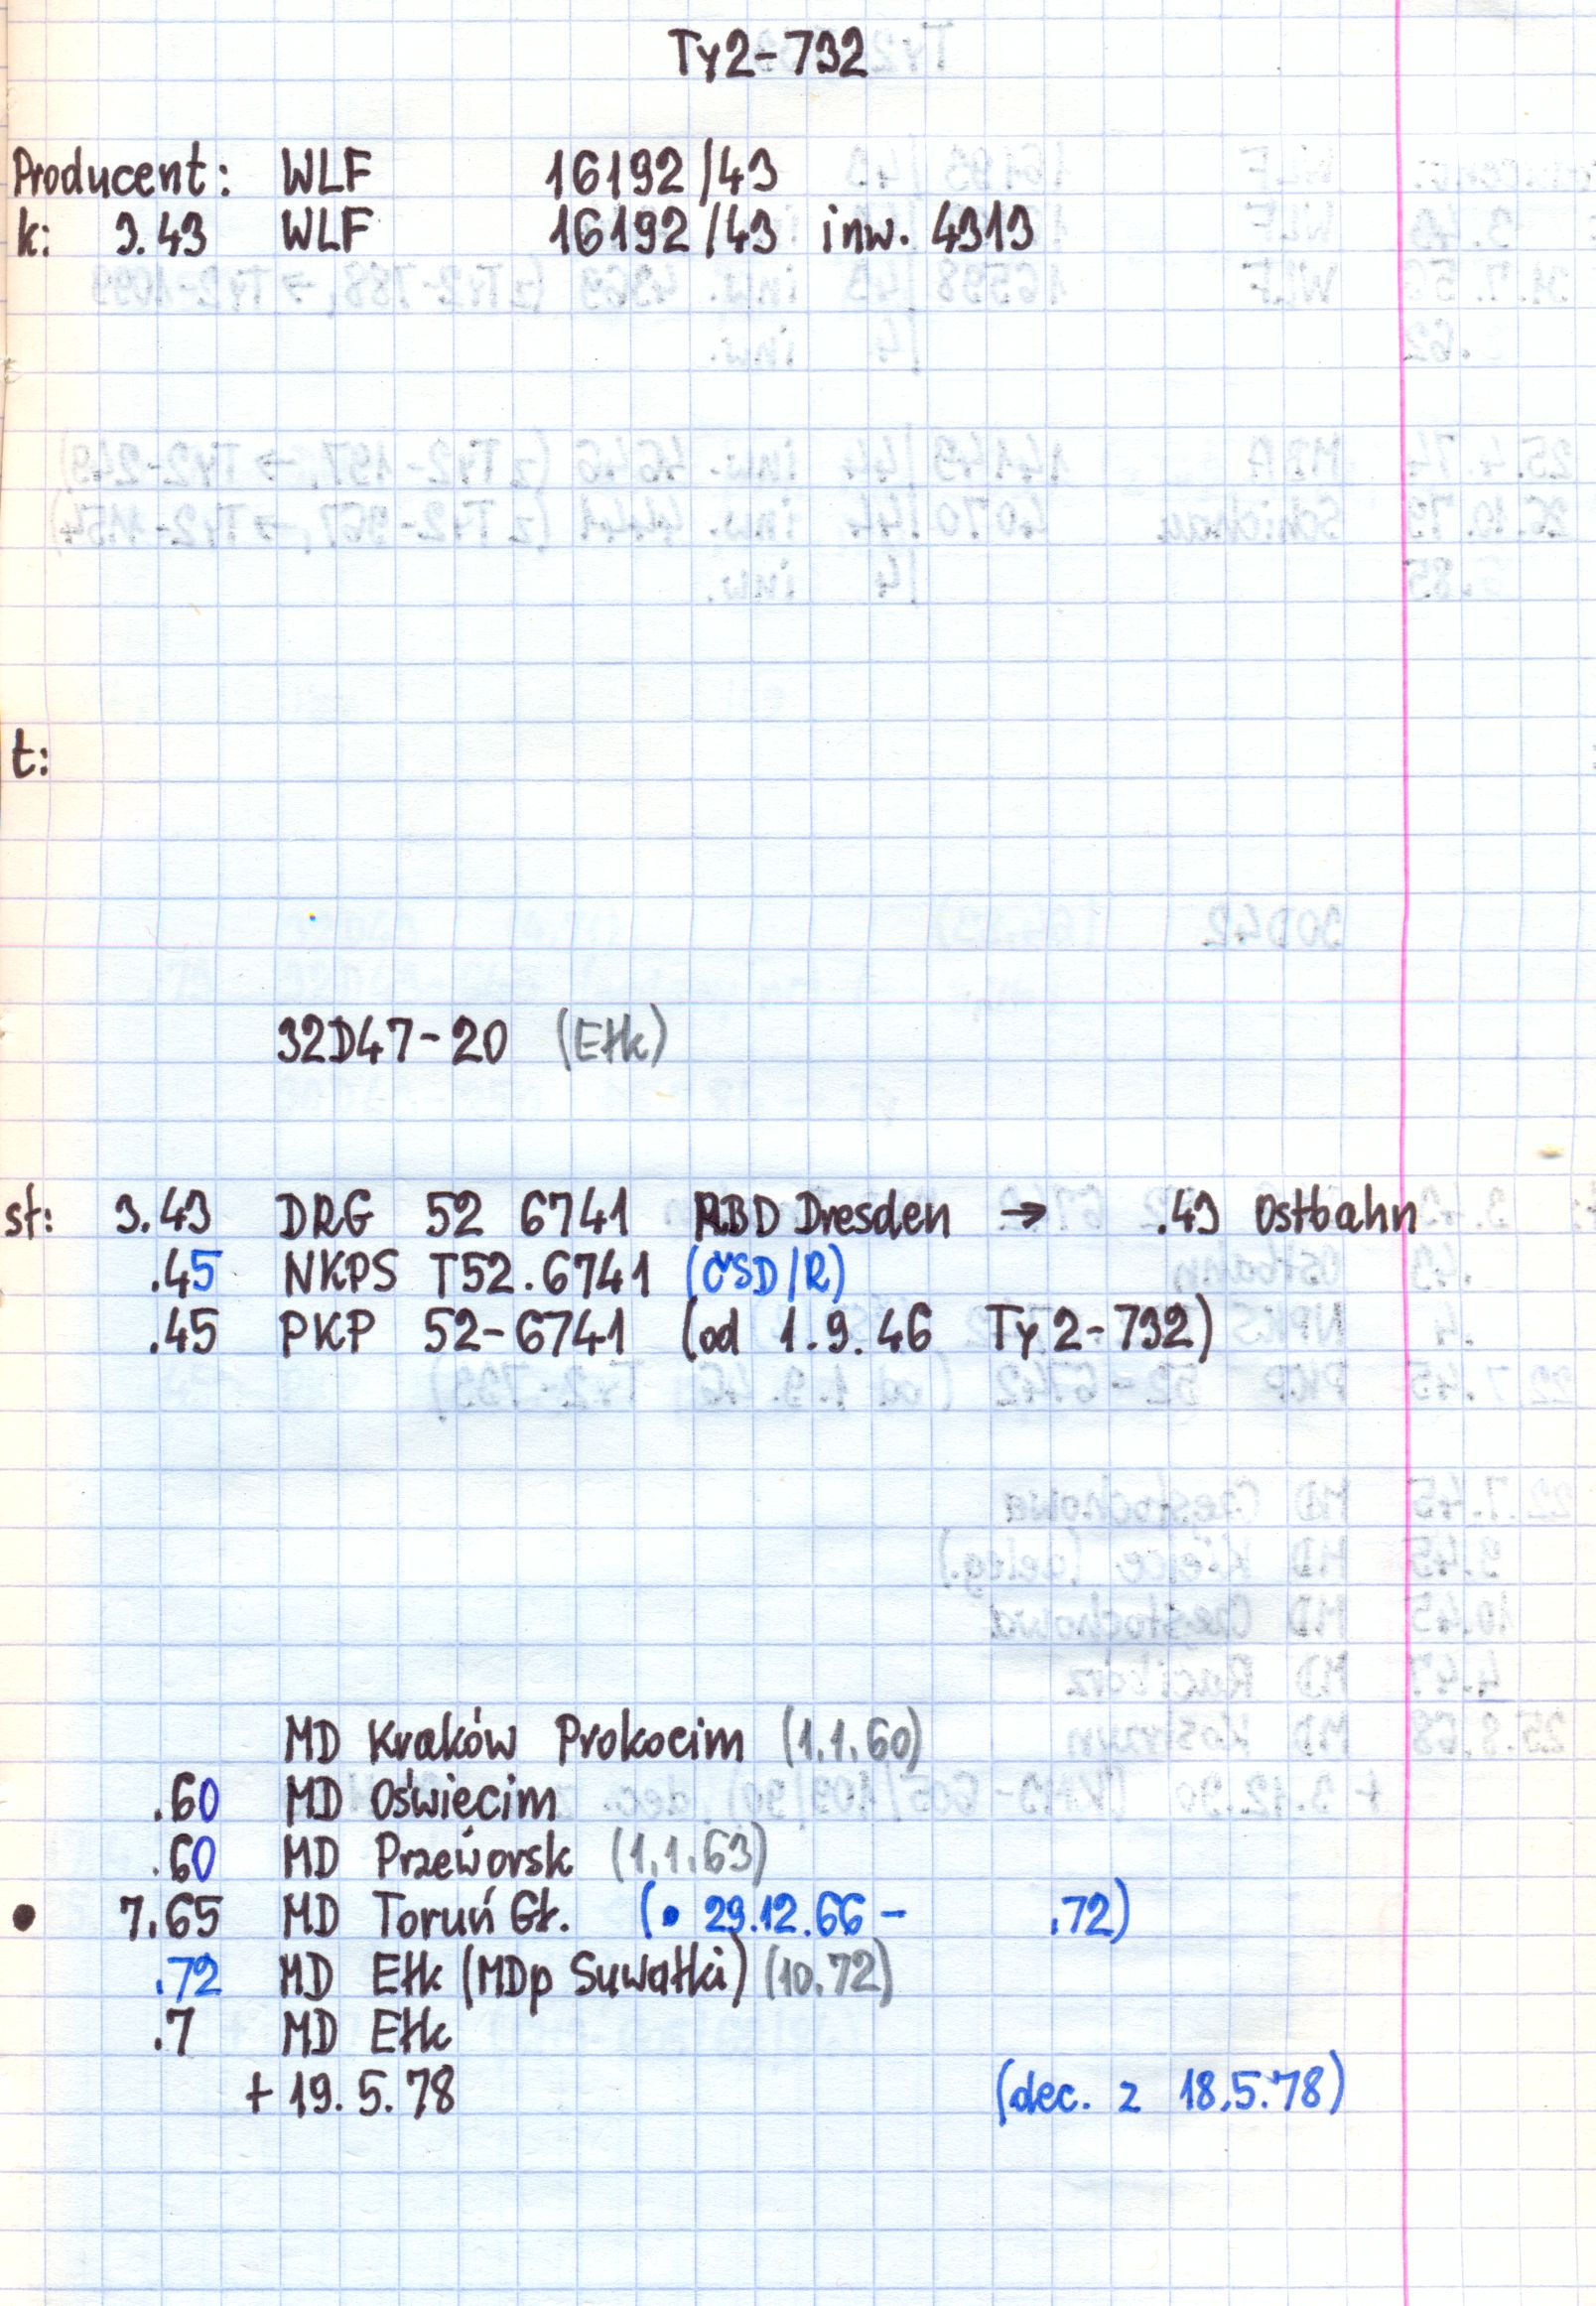 Ty2-732
Producent: WLF 16192/43
k: 3.43 WLF 16192/43 inw. 4313
t:
32D47-20 (Ełk)
st: 3.43 DRG 52 6741 RBD Dresden → .43 Ostbahn
.45 NKPS T52.6741 (ČSD/R)
.45 PKP 52-6741 (od 1.9.46 Ty2-732)
MD Kraków Prokocim (1.1.60)
.60 MD Oświęcim
.60 MD Przeworsk (1.1.63)
• 7.65 MD Toruń Gł. (• 29.12.66 - .72)
.72 MD Ełk (MDp Suwałki) (10.72)
.7 MD Ełk
+ 19.5.78 (dec. z 18.5.78)